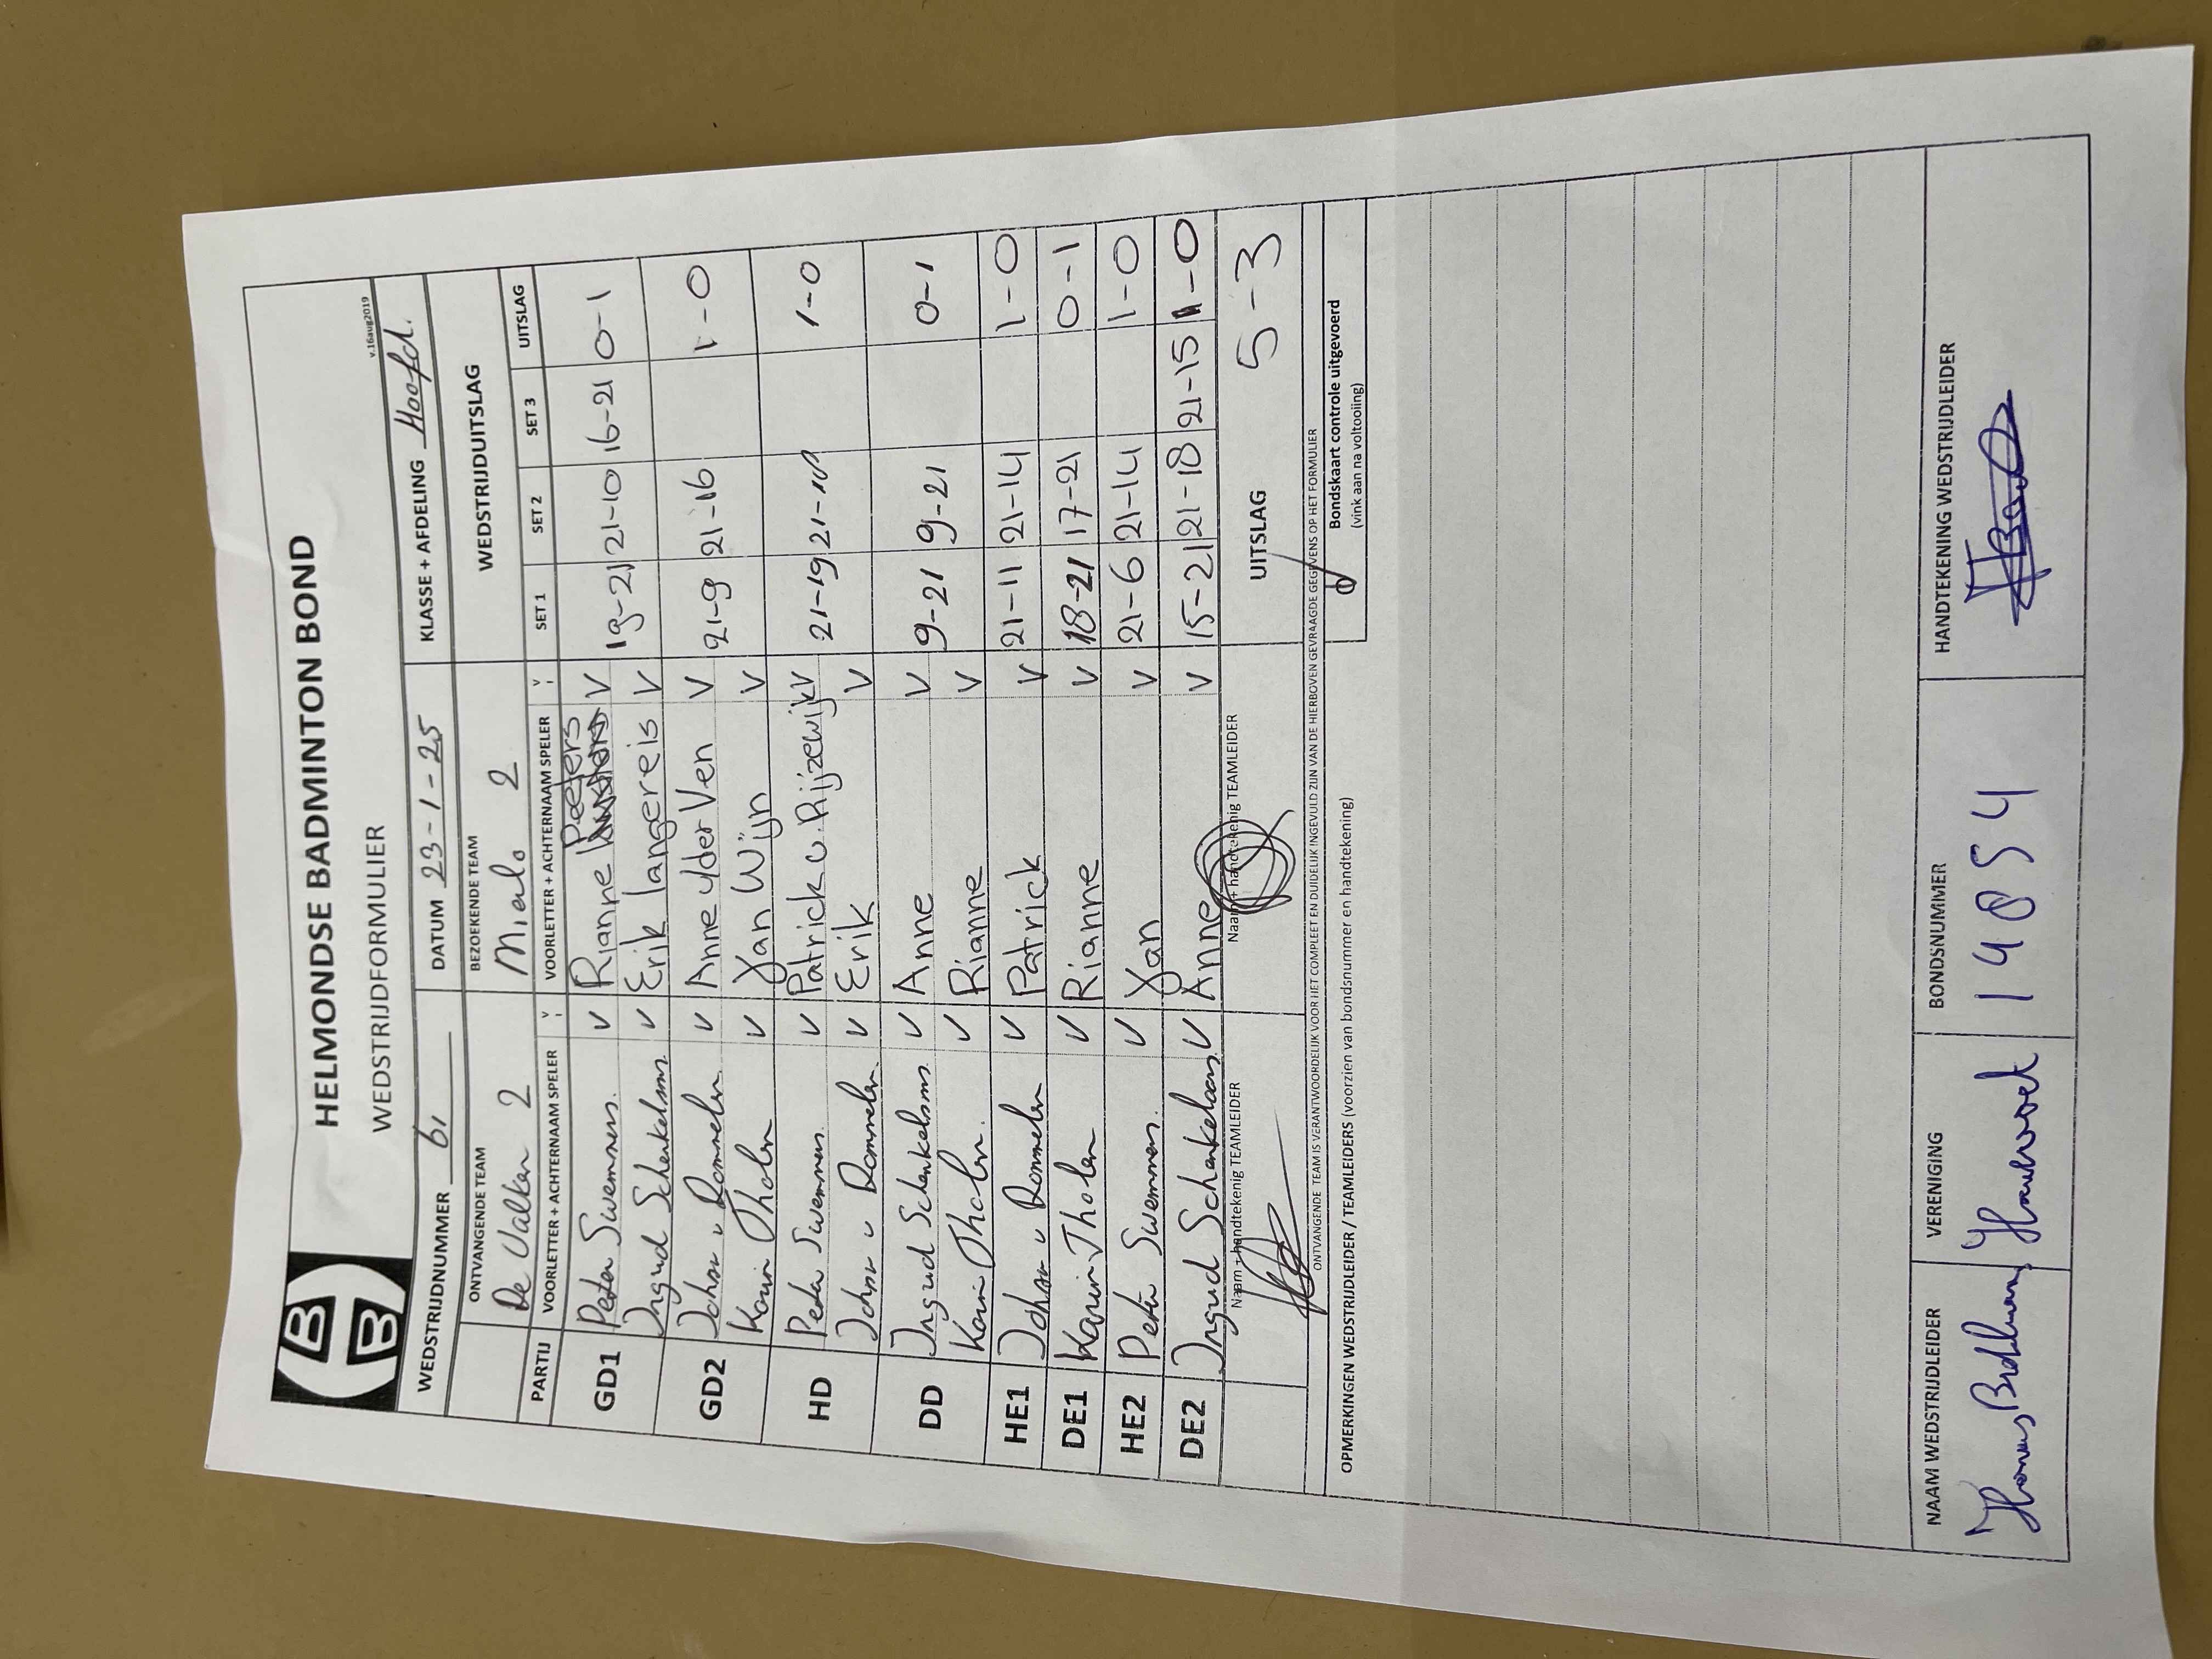 HELMONDSE BADMINTON BOND
WEDSTRIJDFORMULIER
v.16aug2019
WEDSTRIJDNUMMER 61 DATUM 23-1-25 KLASSE + AFDELING Hoofd.
ONTVANGENDE TEAM BEZOEKENDE TEAM WEDSTRIJDUITSLAG
De Valken 2 Mierlo 2
PARTIJ VOORLETTER + ACHTERNAAM SPELER V VOORLETTER + ACHTERNAAM SPELER V SET 1 SET 2 SET 3 UITSLAG
GD1 Peter Swemmers. V Rianne Peeters V 19-21 21-10 16-21 0-1
Ingrid Schenkelaars V Erik Langereis V
GD2 Johan v Rommelen V Anne v/der Ven V 21-9 21-16 1-0
Karin Tholen V Jan Wijn V
HD Peter Swemmers. V Patrick v. Rijzewijk V 21-19 21-10 1-0
Johan v Rommelen. V Erik V
DD Ingrid Schenkelaars V Anne V 9-21 9-21 0-1
Karin Tholen. V Rianne V
HE1 Johan v Rommelen V Patrick V 21-11 21-14 1-0
DE1 Karin Tholen V Rianne V 18-21 17-21 0-1
HE2 Peter Swemmers. V Jan V 21-6 21-14 1-0
DE2 Ingrid Schenkelaars V Anne V 15-21 21-18 21-15 1-0
Naam + handtekenig TEAMLEIDER Naam + handtekenig TEAMLEIDER UITSLAG 5-3
ONTVANGENDE TEAM IS VERANTWOORDELIJK VOOR HET COMPLEET EN DUIDELIJK INGEVULD ZIJN VAN DE HIERBOVEN GEVRAAGDE GEGEVENS OP HET FORMULIER
Bondskaart controle uitgevoerd
(vink aan na voltooiing)
OPMERKINGEN WEDSTRIJDLEIDER / TEAMLEIDERS (voorzien van bondsnummer en handtekening)
NAAM WEDSTRIJDLEIDER VERENIGING BONDSNUMMER HANDTEKENING WEDSTRIJDLEIDER
14054